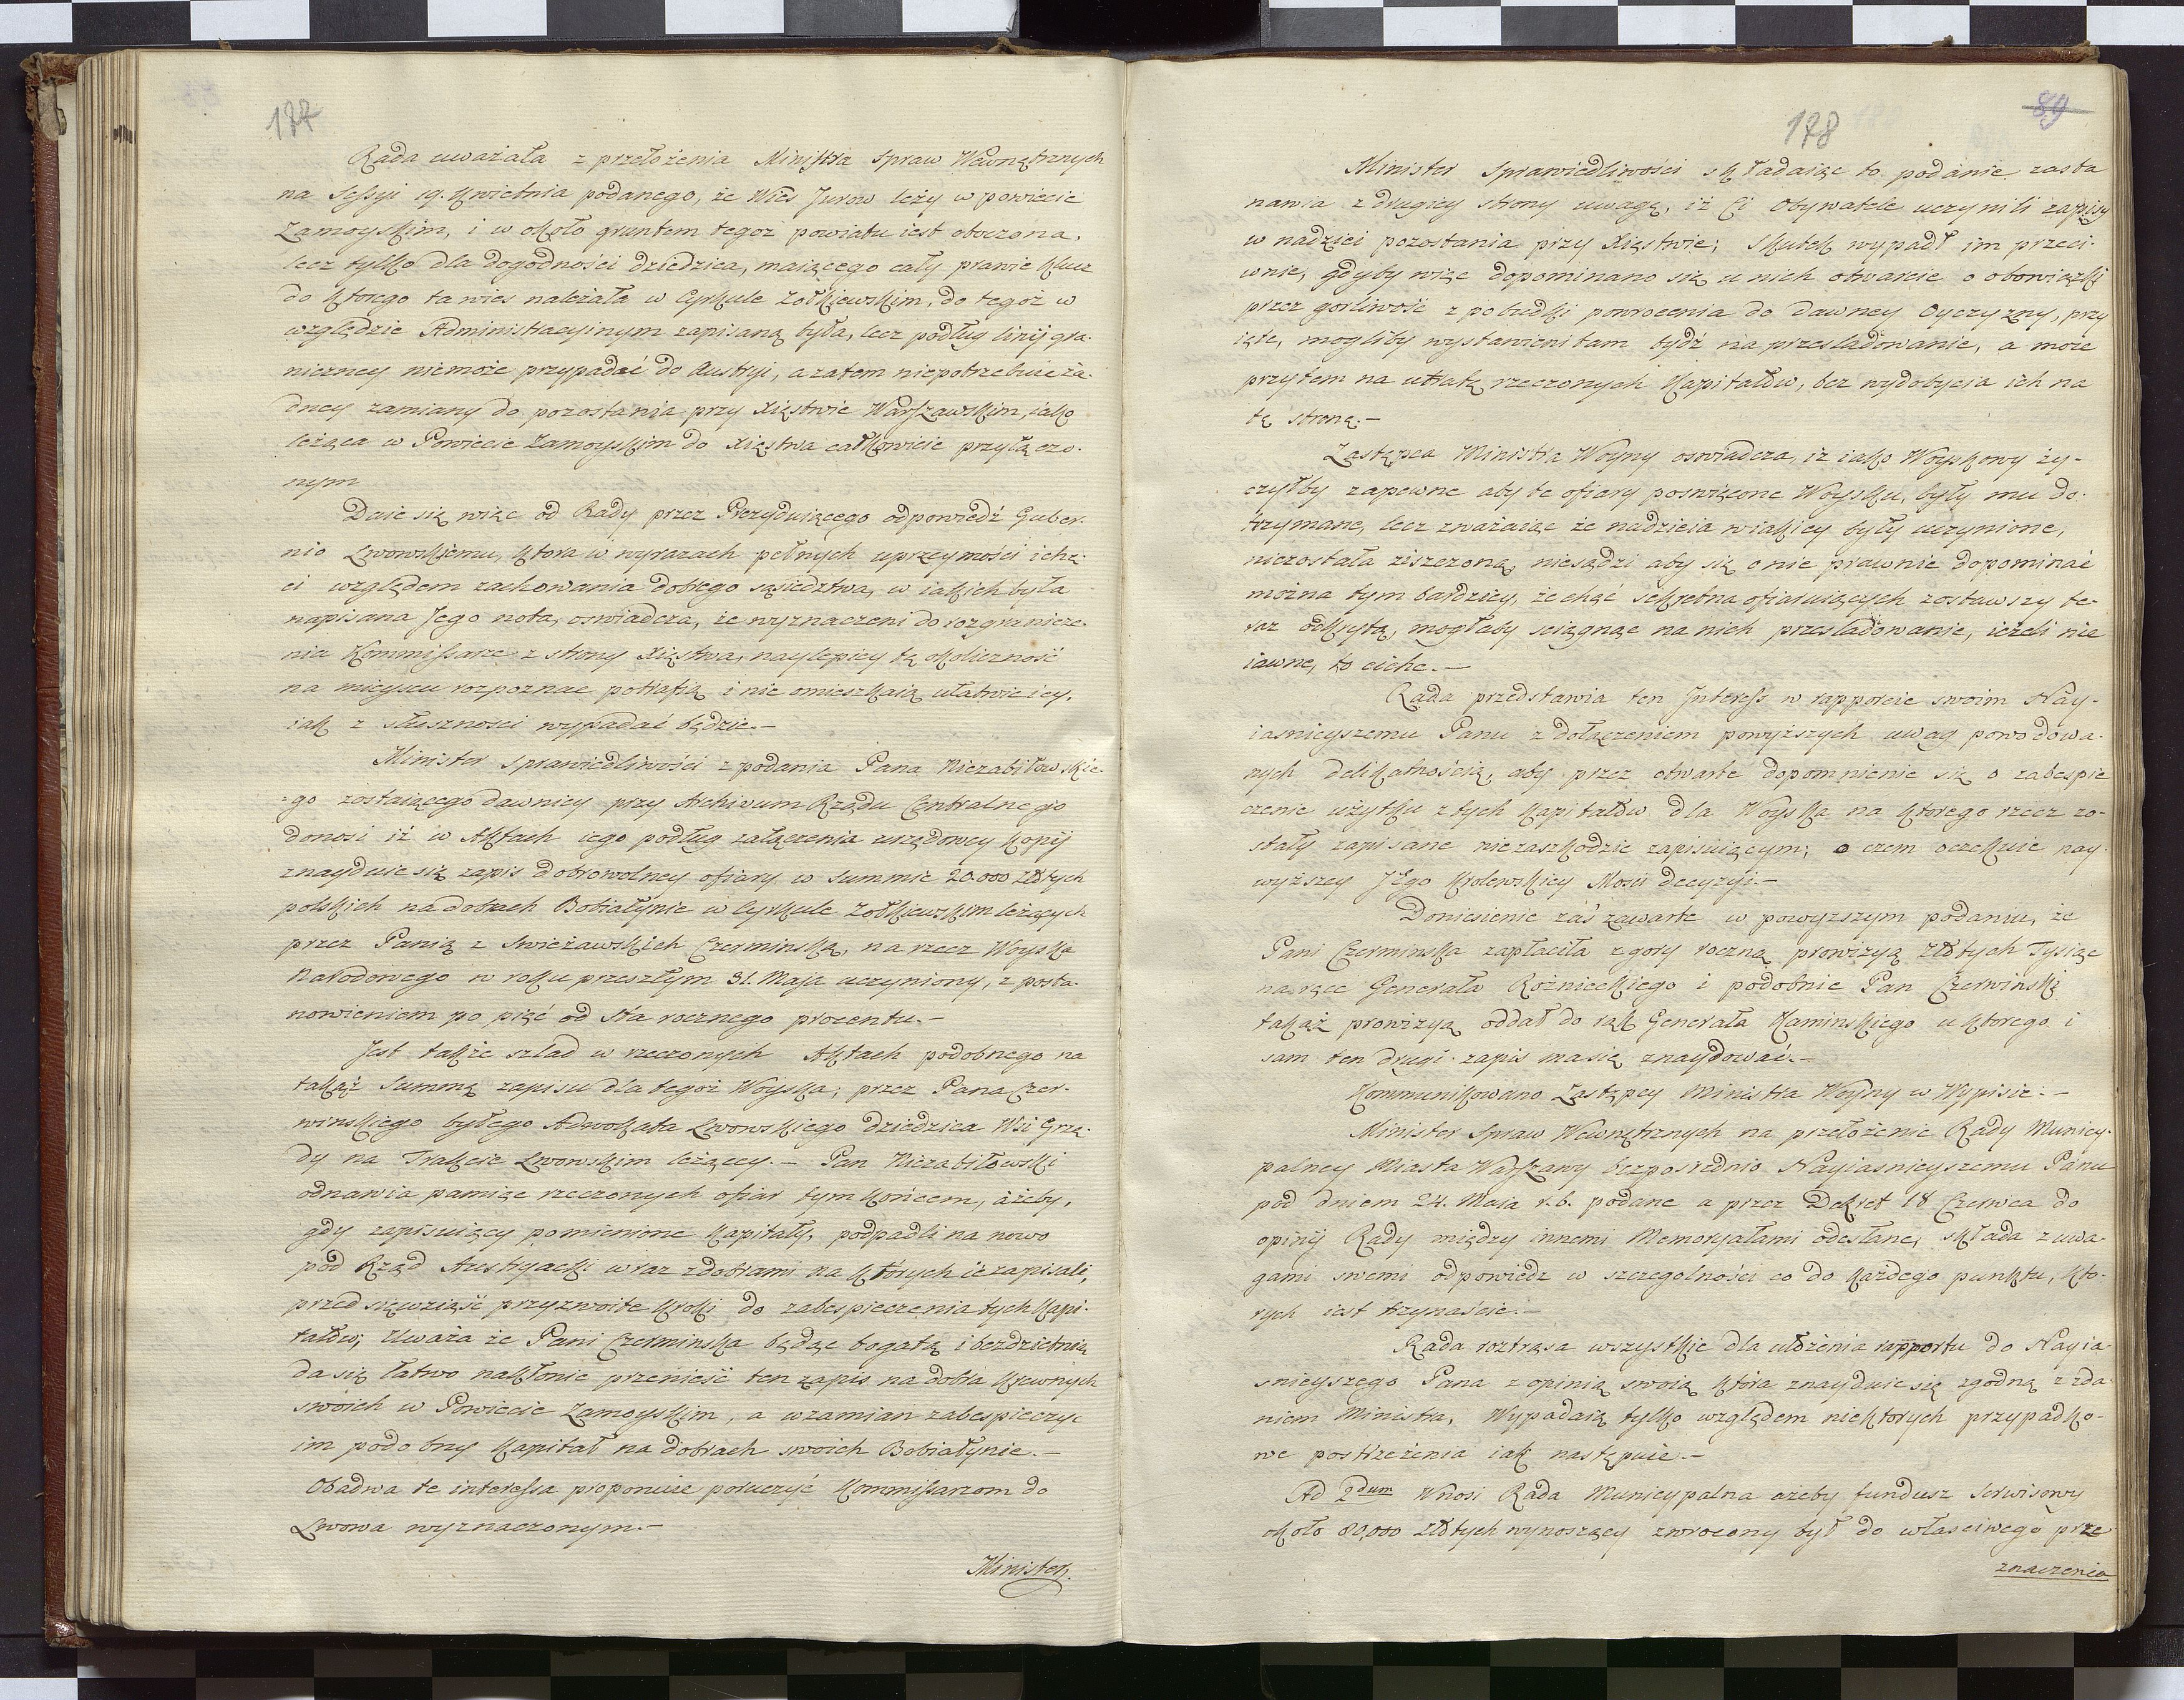 177
Rada uważała z przełożenia Ministra Spraw Wewnętrznych
na Sessyi 19. Kwietnia podanego, że Wieś Jurow leży w powiecie
Zamoyskim, i w około gruntem tegoz powiatu iest otoczona,
lecz tylko dla dogodności dziedzica, maiącego cały prawie Klucz
do ktorego ta wies należała w Cyrkule Zołkiewskim, do tegoż w
względzie Administracyinym zapisaną była, lecz podług linii gra-
niczney niemoże przypadać do Austryi, a zatem niepotrzebuie ża-
dney zamiany do pozostania przy Xięstwie Warszawskim, iako
leżąca w Powiecie Zamoyskim do Xięstwa całkowicie przyłączo-
nym
Daie się więc od Rady przez Prezyduiącego odpowiedź Guber-
nio Lwowskiemu, ktora w wyrazach pełnych uprzeymości i chę-
ci względem zachowania dobrego sąsiedztwa, w iakich była
napisana Jego nota, oswiadcza, że wyznaczeni do rozgranicze-
nia Kommissarze z strony Xięstwa, naylepiey tę okoliczność
na mieyscu rozpoznac potrafią i nie omieszkaią ułatwic iey,
iak z słuszności wypadać będzie.—
Minister Sprawiedliwości z podania Pana Niezabitowskie-
=go zostaiącego dawniey przy Archivum Rządu Centralnego
donosi iż w Aktach iego podług załączenia urzędowey kopii
znayduie się zapis dobrowolney ofiary w Summie 20.000 Złotych
polskich na dobrach Bobiatynie w Cyrkule Zołkiewskim leżących
przez Panią z Swieżawskich Czerminską, na rzecz Woyska
Narodowego w roku przeszłym 31. Maja uczyniony, z posta-
nowieniem po pięć od Sta rocznego procentu.—
Jest także szlad w rzeczonych Aktach podobnego na
takąż Summę zapisu dla tegoż Woyska, przez Pana Czer-
winskiego byłego Adwokata Lwowskiego dziedzica Wsi Grzę-
dy na Trakcie Lwowskim leżącey.— Pan Niezabitowski
odnawia pamięc rzeczonych ofiar tym końcem, ażeby,
gdy zapisuiący pomienione kapitały, podpadli na nowo
pod Rząd Austryacki wraz z dobrami na ktorych ie zapisali,
przedsięwziąść przyzwoite kroki do zabespieczenia tych kapi-
tałów; Uważa że Pani Czerminska będąc bogatą i bezdzietnią
da się łatwo nakłonic przenieść ten zapis na dobra krewnych
swoich w Powiecie Zamoyskim, a wzamian zabespieczyc
im podobny kapitał na dobrach swoich Bobiatynie.—
Obadwa te interessa proponuie poruczyć Kommissarzom do
Lwowa wyznaczonym.—
Minister.
89
178
Minister Sprawiedliwości składaiąc to podanie zasta
nawia z drugiey strony uwagę, iż Ci Obywatele uczynili zapisy
w nadziei pozostania przy Xięstwie; Skutek wypadł im przeci-
wnie, gdyby więc dopominano się u nich otwarcie o obowiązki
przez gorliwość z pobudki powrocenia do dawney Oyczyzny, przy
ięte, mogliby wystawieni tam bydź na przesladowanie, a może
przytem na utratę rzeczonych kapitałów, bez wydobycia ich na
tę stronę.—
Zastępca Ministra Woyny oswiadcza, iz iako Woyskowy ży-
czyłby zapewne aby te ofiary poswięcone Woysku, były mu do-
trzymane, lecz zważaiąc że nadzieia w iakiey były uczynione,
niezostała ziszczoną, niesądzi aby się o nie prawnie dopominać
można tym bardziey, że chęć sekretna ofiaruiących zostawszy te-
raz odkrytą, mogłaby sciągnąc na nich przesladowanie, ieżeli nie
iawne, to ciche.—
Rada przedstawia ten Interess w rapporcie swoim Nay-
iasnieyszemu Panu z dołączeniem powyższych uwag powodowa-
nych delikatnością, aby przez otwarte dopomnienie się o zabespie
czenie użytku z tych kapitałów dla Woyska na ktorego rzecz zo-
stały zapisane niezaszkodzic zapisuiącym; o czem oczekuie nay-
wyższey JEgo Krolewskiey Mości decyzyi.—
Doniesienie zaś zawarte w powyższym podaniu, że
Pani Czerminska zapłaciła z gory roczną prowizyą Złotych Tysiąc
na ręce Generała Rożnieckiego i podobnie Pan Czerwiński
takąż prowizyą oddał do rąk Generała Kaminskiego u ktorego i
sam ten drugi zapis ma się znaydować.—
Kommunikowano Zastępcy Ministra Woyny w Wypisie.—
Minister Spraw Wewnętrznych na przełożenie Rady Municy-
palney Miasta Warszawy bezposrednio Nayiasnieyszemu Panu
pod dniem 24. Maia r.b. podane a przez Dekret 18 Czerwca do
opinii Rady między innemi Memoryałami odesłane, składa z uwa-
gami swemi odpowiedz w szczegolności co do każdego punktu, kto-
rych iest trzynaście.—
Rada roztrząsa wszystkie dla ułożenia rapportu do Nayia-
snieyszego Pana z opinią swoią która znayduie się zgodną z zda-
niem Ministra, Wypadaią tylko względem niektorych przypadko-
we postrzeżenia iak następuie.—
Ad 2dum Wnosi Rada Municypalna ażeby fundusz Serwisowy
około 80,000 złotych wynoszący zwrocony był do własciwego prze-
znaczenia